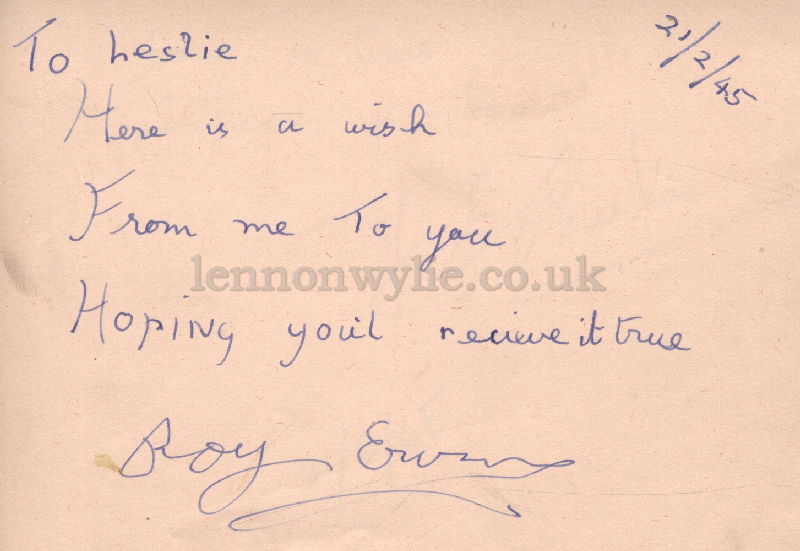 To Leslie
21/2/45
Here is a wish
From me To you
lennonwylie.co.uk
Hoping you'l recieve it true
Roy